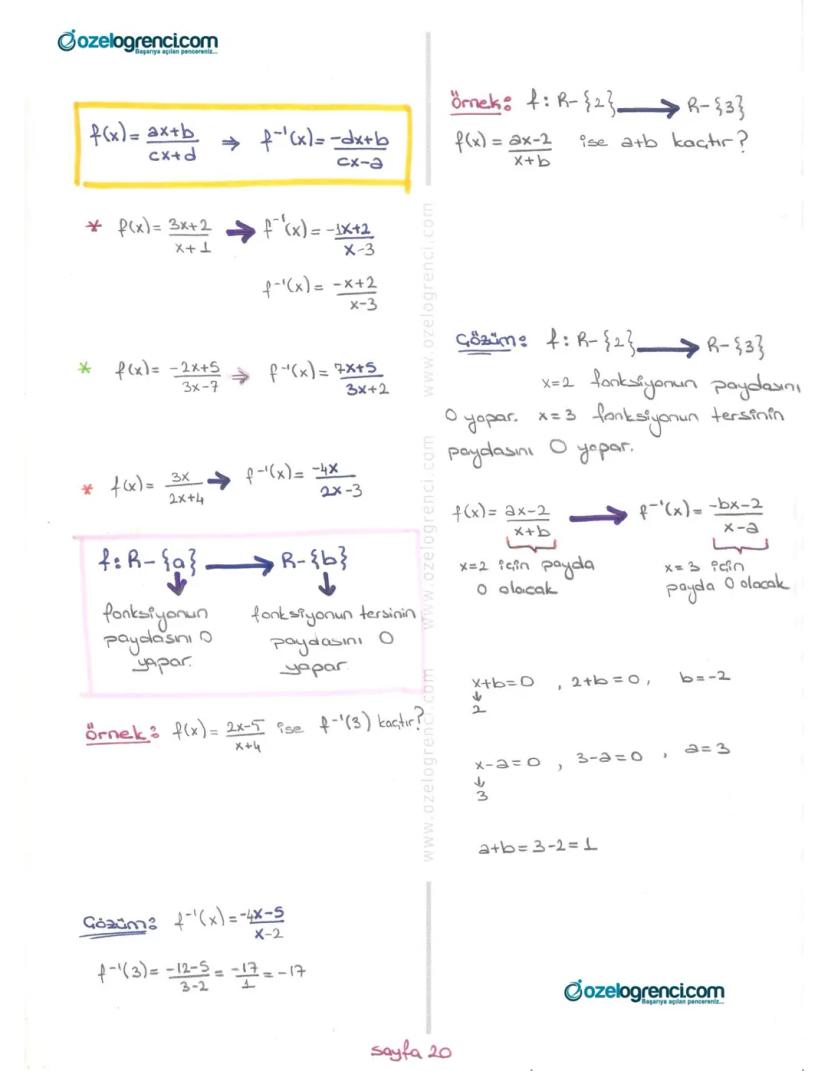 ozelogrenci.com
Başarıya açılan pencereniz...
f(x) = (ax+b)/(cx+d) ⇒ f⁻¹(x) = (-dx+b)/(cx-a)
* f(x) = (3x+2)/(x+1) → f⁻¹(x) = (-1x+2)/(x-3)
f⁻¹(x) = (-x+2)/(x-3)
* f(x) = (-2x+5)/(3x-7) ⇒ f⁻¹(x) = (7x+5)/(3x+2)
* f(x) = 3x/(2x+4) → f⁻¹(x) = -4x/(2x-3)
f: R-{a} → R-{b}
↓ ↓
fonksiyonun fonksiyonun tersinin
paydasını 0 paydasını 0
yapar. yapar
Örnek: f(x) = (2x-5)/(x+4) ise f⁻¹(3) kaçtır?
Çözüm: f⁻¹(x) = (-4x-5)/(x-2)
f⁻¹(3) = (-12-5)/(3-2) = -17/1 = -17
www.ozelogrenci.com www.ozelogrenci.com www.ozelogrenci.com
Örnek: f: R-{2} → R-{3}
f(x) = (ax-2)/(x+b) ise a+b kaçtır?
Çözüm: f: R-{2} → R-{3}
x=2 fonksiyonun paydasını
0 yapar. x=3 fonksiyonun tersinin
paydasını 0 yapar.
f(x) = (ax-2)/(x+b) → f⁻¹(x) = (-bx-2)/(x-a)
x=2 için payda x=3 için
0 olacak payda 0 olacak
x+b=0 , 2+b=0, b=-2
↓
2
x-a=0 , 3-a=0 , a=3
↓
3
a+b=3-2=1
ozelogrenci.com
Başarıya açılan pencereniz...
sayfa 20